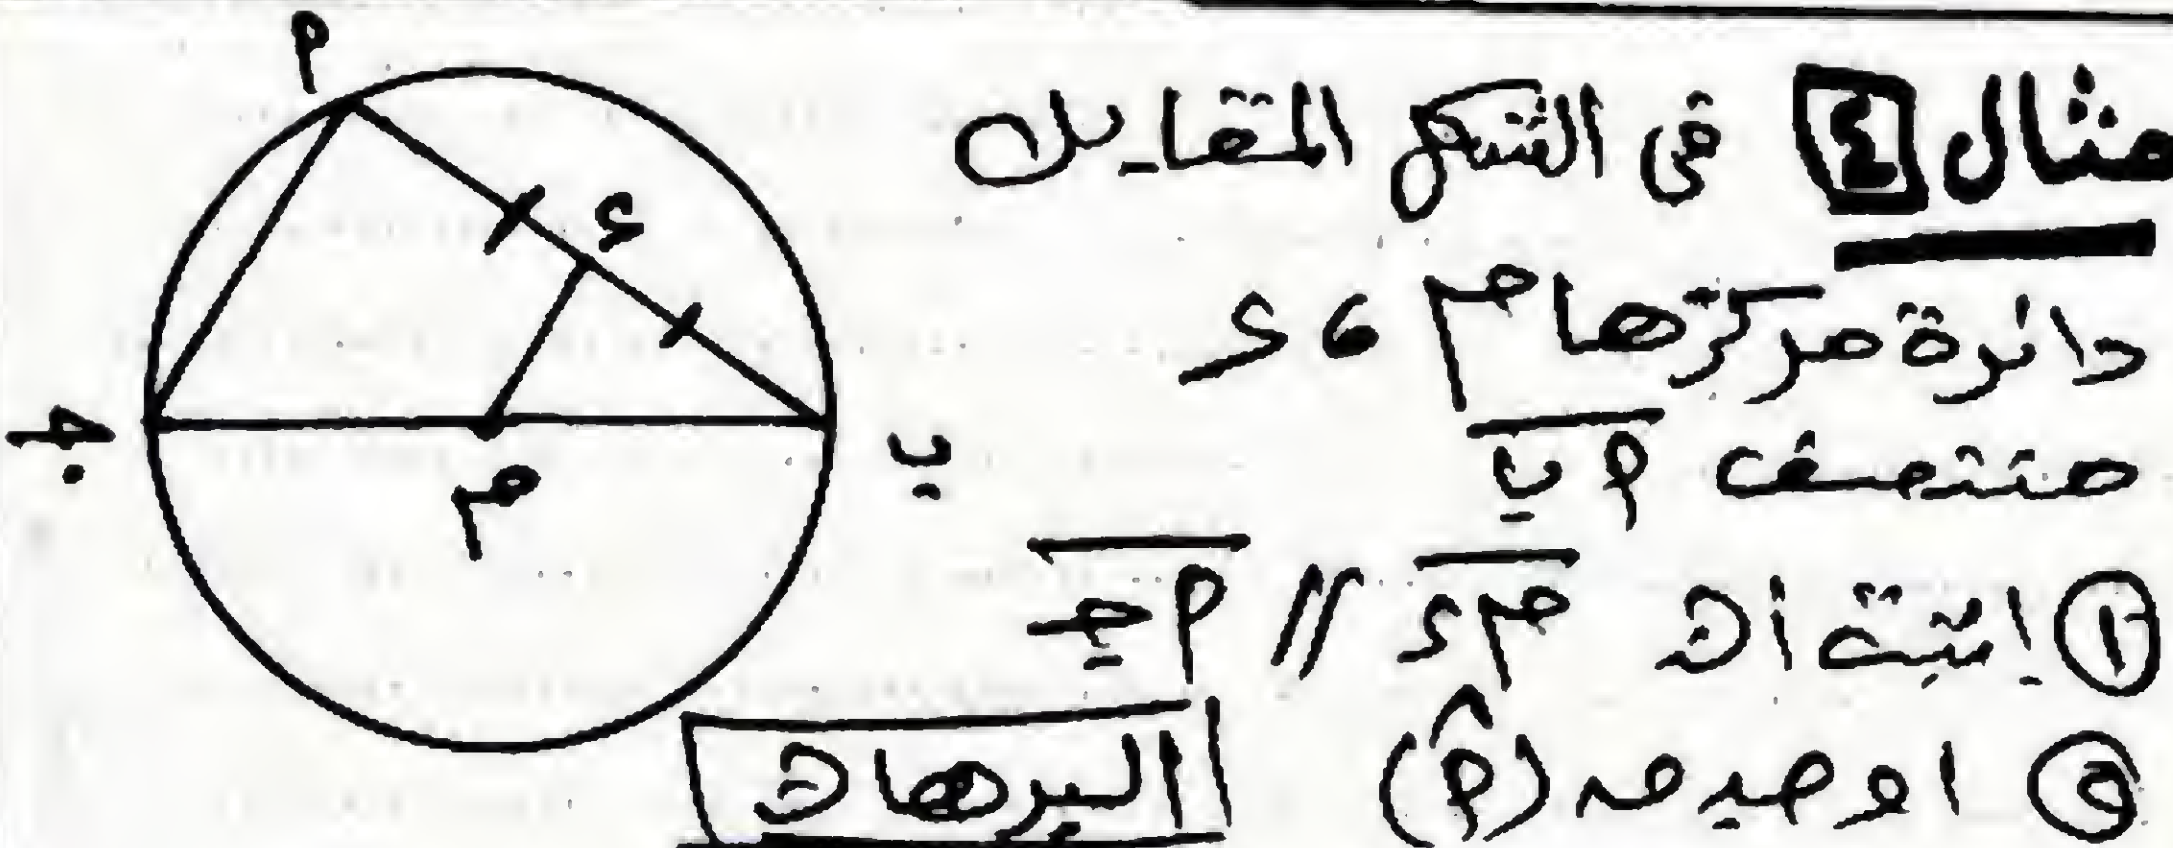 مثال ٤ في الشكل المقابل
دائرة مركزها م ، ء
منتصف أ ب
① اثبت أن م ء // أ جـ
② اوجد ق (أ)
البرهان
أ
ء
جـ
م
ب